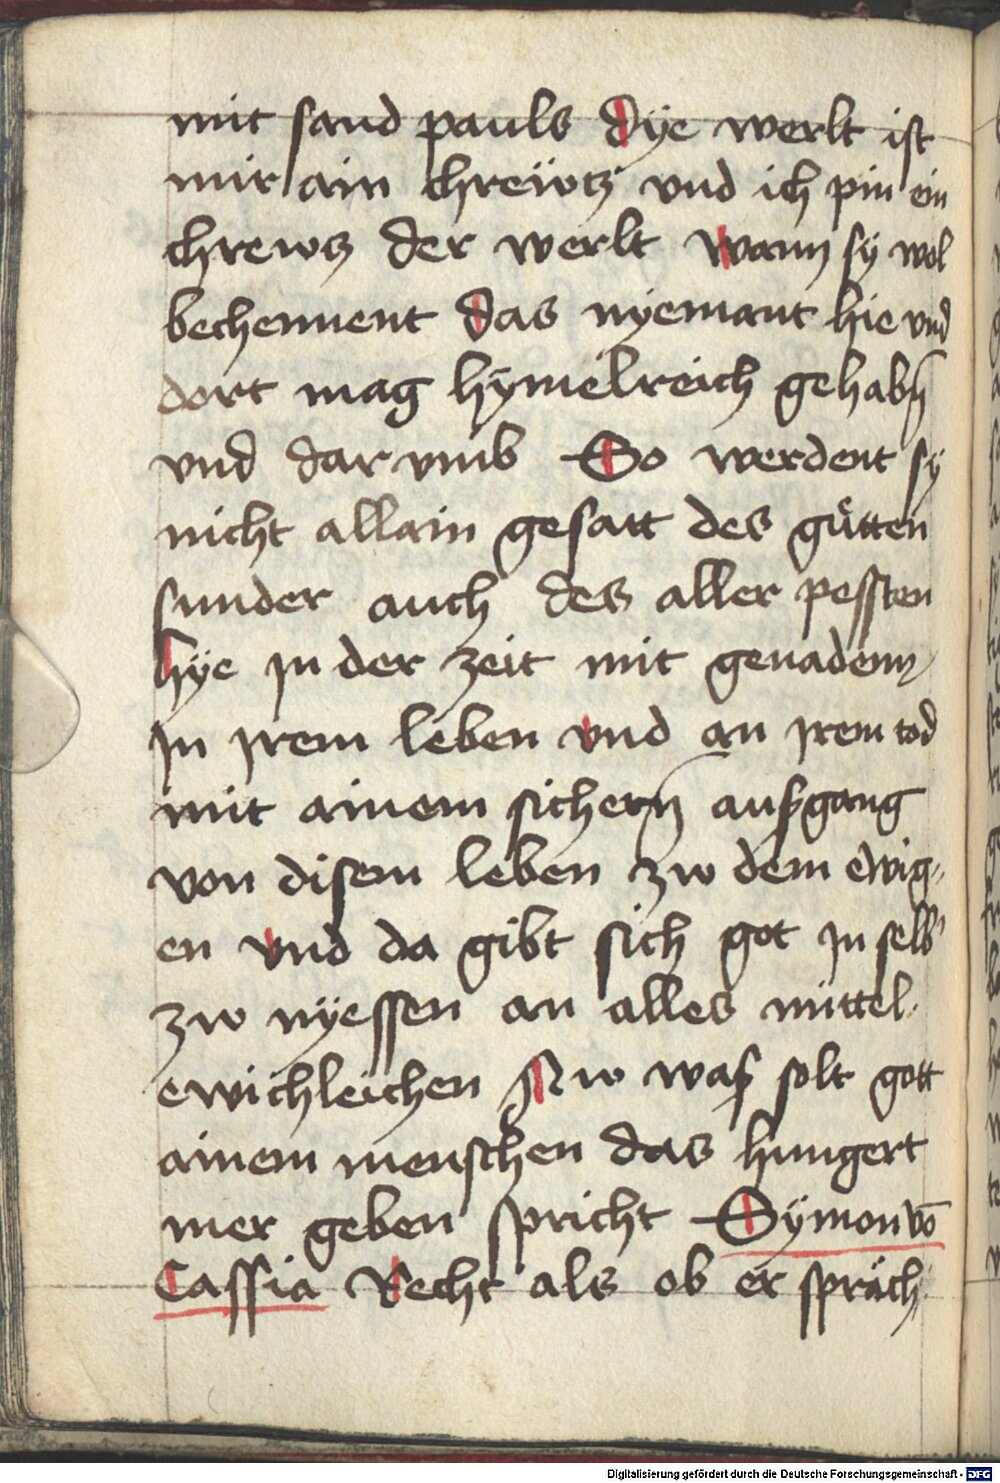 mit sand pauls Dÿe werlt ist
mir ain chreẅtz vnd ich pin ein
chrews der werlt Wann sy wol
bechennent Das nyemant hie vnd
dort mag hÿmelreich gehabn̄
vnd dar vmb So werdent sy
nicht allain gesatt des gütten
sunder auch des aller pessten
hÿe jn der zeit mit genadenn
jn jrem leben vnd an jrem tod
mit ainem sichern̄ außgang
von disem leben zw dem ewig⸗
en vnd da gibt sich got jn selb
zw nÿessen an alles mittel
ewichleichen Nw waß solt gott
ainem menschen das hungert
mer geben spricht Sÿmon vō
Cassia Recht als ob er spräch
Digitalisierung gefördert durch die Deutsche Forschungsgemeinschaft - DFG